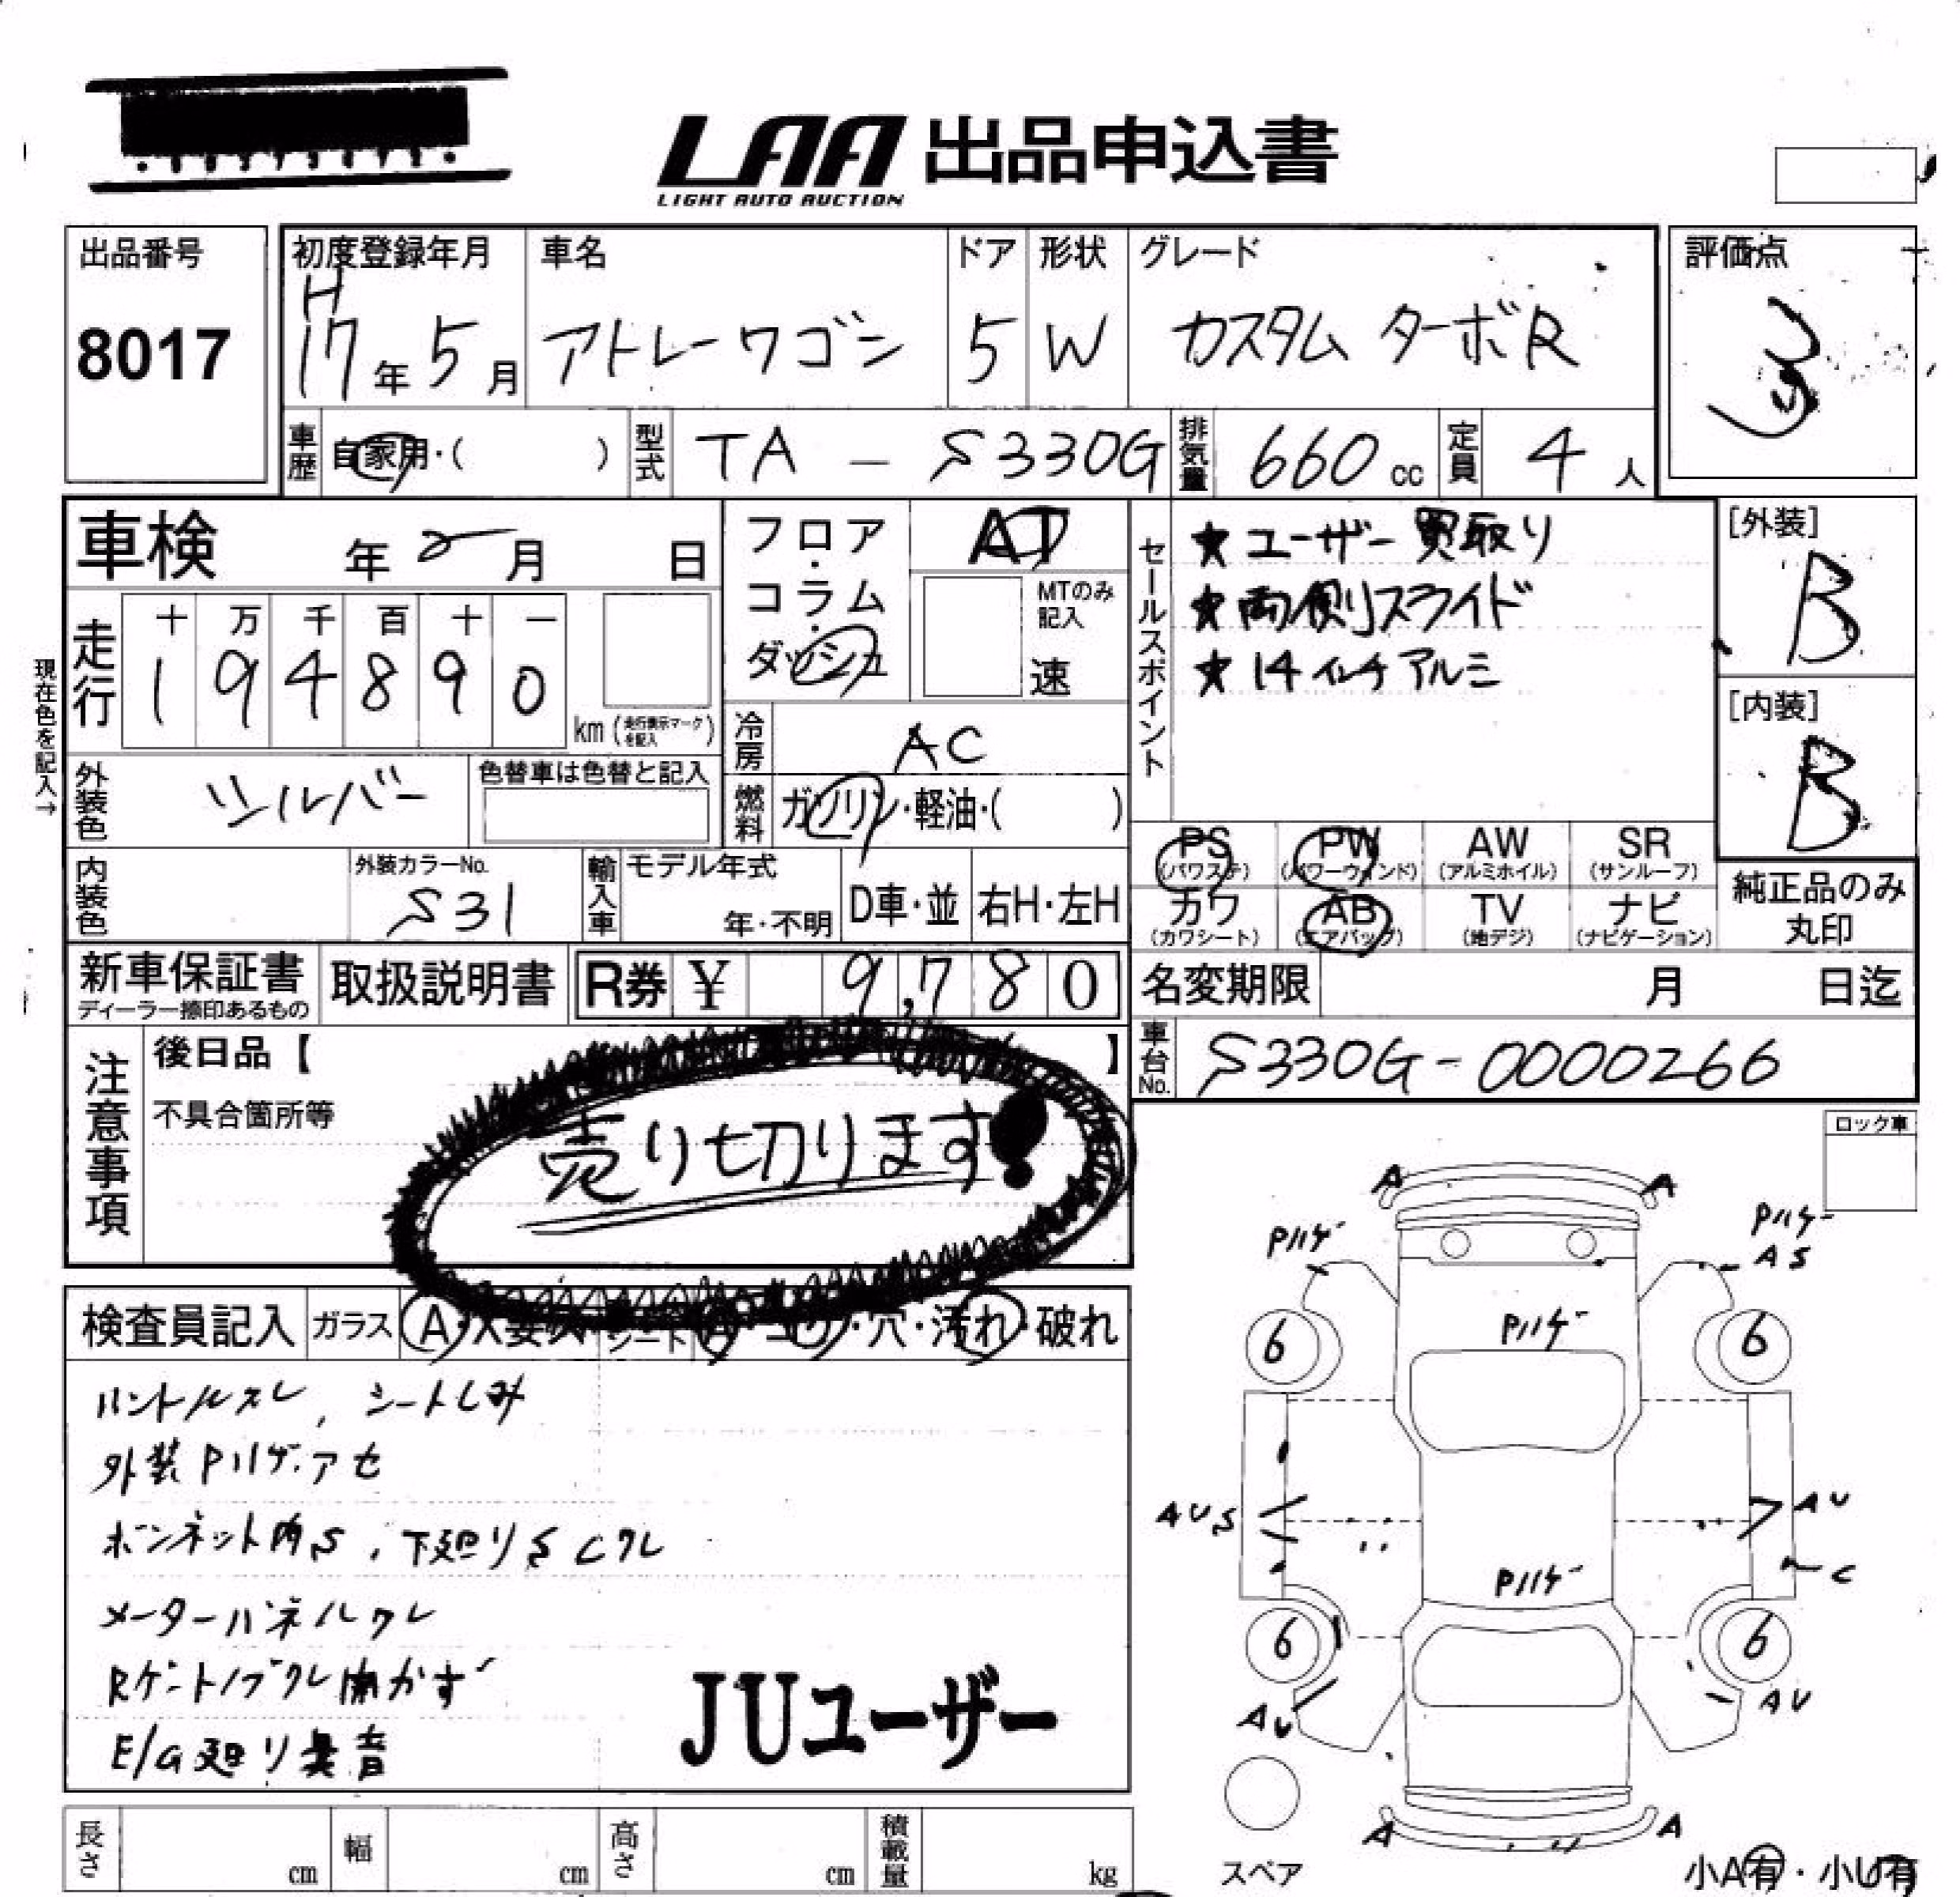 LAA 出品申込書
LIGHT AUTO AUCTION
出品番号
8017
初度登録年月
H
17年5月
車名
アトレーワゴン
ドア
5
形状
W
グレード
カスタム ターボR
評価点
3
車歴 自家用・( )
型式 TA - S330G
排気量 660 cc
定員 4 人
車検 年 2 月 日
フロア・コラム・ダッシュ
AT
MTのみ記入
速
セールスポイント
★ユーザー買取り
★両側スライド
★14インチアルミ
[外装]
B
[内装]
B
現在色を記入→
走行
十 万 千 百 十 一
1 9 4 8 9 0
km (走行表示マークを記入)
冷房 AC
燃料 ガソリン・軽油・( )
外装色 シルバー
色替車は色替と記入
内装色
外装カラーNo.
S31
輸入車
モデル年式
年・不明
D車・並
右H・左H
PS (パワステ)
PW (パワーウィンド)
AW (アルミホイル)
SR (サンルーフ)
カワ (カワシート)
AB (エアバッグ)
TV (地デジ)
ナビ (ナビゲーション)
純正品のみ
丸印
新車保証書
ディーラー捺印あるもの
取扱説明書
R券 ¥ 9,780
名変期限 月 日迄
車台No. S330G-0000266
注意事項
後日品【 】
不具合箇所等
売り切ります!
ロック車
検査員記入 ガラス A・X要 シート ・穴・汚れ・破れ
ハンドルスレ、シートしみ
外装Pハゲ.アセ
ボンネット内S、下廻りSCワレ
メーターパネルワレ
RゲートノブワレB開かず
E/G廻り異音
JUユーザー
A A
Pハゲ
Pハゲ
AS
Pハゲ
6 6
AUS
AU
C
Pハゲ
6 6
AU
AU
A A
スペア
小A有・小U有
長さ cm
幅 cm
高さ cm
積載量 kg